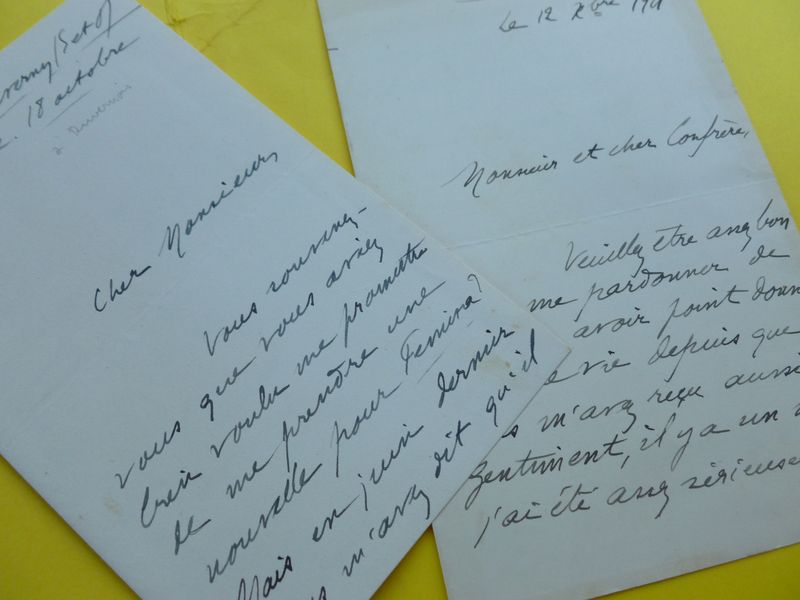 18 octobre
à Duvernois
Cher Monsieur,
Vous souvenez-
vous que vous aviez
bien voulu me promettre
de me prendre une
nouvelle pour Femina?
Mais en juin dernier
m'avez dit qu'il
Le 12 Xbre 191
Monsieur et cher Confrère,
Veuillez être assez bon
me pardonner de
avoir point donn
vie depuis que
s m'avez reçu aussi
gentiment, il y a un
j'ai été assez sérieuse